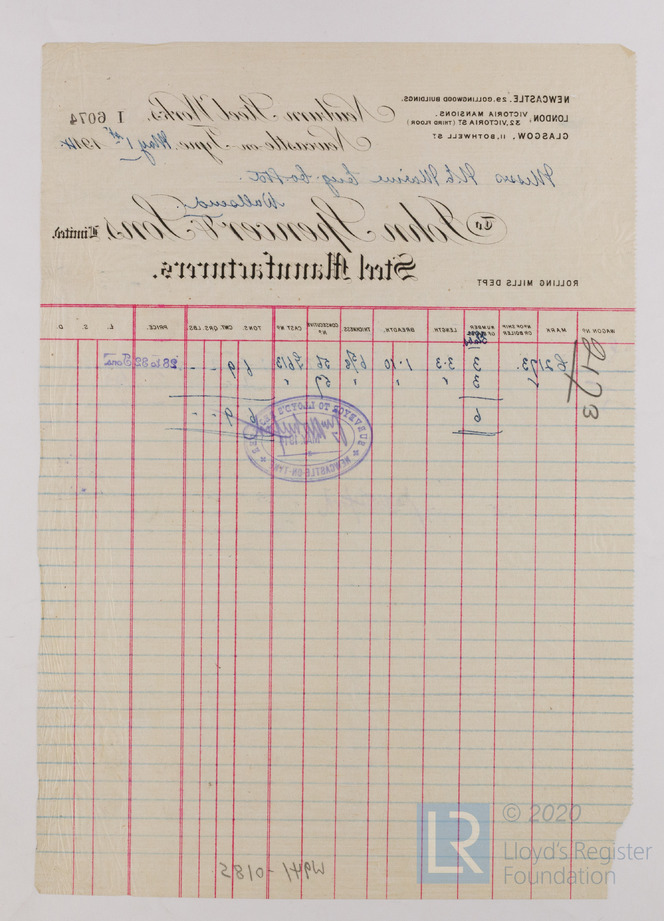 NEWCASTLE, 29, COLLINGWOOD BUILDINGS.
LONDON, VICTORIA MANSIONS, 32, VICTORIA ST (THIRD FLOOR)
GLASGOW, 11, BOTHWELL ST
Newburn Steel Works,
I 6074
Newcastle-on-Tyne, May 1st 1914
Messrs N.E. Marine Eng. Co. Ltd.
Wallsend.
To John Spencer & Sons, Limited,
Steel Manufacturers.
ROLLING MILLS DEPT
WAGON No MARK No OF SHIP OR BOILER NUMBER OF Slabs LENGTH BREADTH THICKNESS CONSECUTIVE No CAST No TONS. CWT. QRS. LBS. PRICE. L. S. D.
2173
2173. 3 3.3 1.10 56 6 9 - - 28 to 32 Tons
" 3 " " " 57 "
6 6 9 - -
SURVEYOR TO LLOYD'S
NEWCASTLE-ON-TYNE
W941-0185
LR
© 2020
Lloyd's Register
Foundation